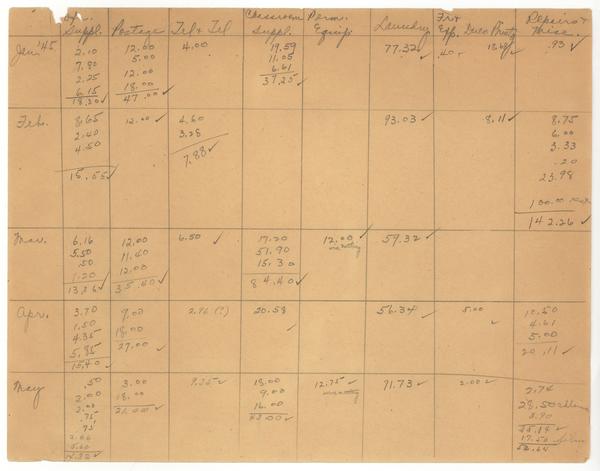 Suppl. Postage Tel & Tel Classroom Suppl. Perm. Equip. Laundry Frt Exp. Dues Repairs & Misc.
Jan. '45 2.10 12.00 4.00 19.59 77.32 ✓ .40 13.68 ✓ .93 ✓
7.80 5.00 11.05
2.25 12.00 6.61
6.15 18.00 37.25 ✓
18.30 ✓ 47.00 ✓
Feb. 8.65 12.00 ✓ 4.60 93.03 ✓ 8.11 ✓ 8.75
2.40 3.28 6.00
4.50 7.88 ✓ 3.33
15.55 ✓ .20
23.98
100.00
142.26 ✓
Mar. 6.16 12.00 6.50 ✓ 17.20 12.00 ✓ 59.32 ✓
5.50 11.40 51.90
.50 12.00 15.30
1.20 35.40 ✓ 84.40 ✓
13.26 ✓
Apr. 3.70 9.00 2.96 (?) 20.58 ✓ 56.34 ✓ 5.00 ✓ 10.50
1.50 18.00 4.61
4.35 27.00 ✓ 5.00
5.85 20.11 ✓
15.40 ✓
May .50 3.00 9.35 ✓ 18.00 12.75 ✓ 71.73 ✓ 2.00 ✓ 2.74
2.00 18.00 9.00 28.50
2.00 21.00 ✓ 16.00
.75 43.00 ✓
.75 17.50
52.64